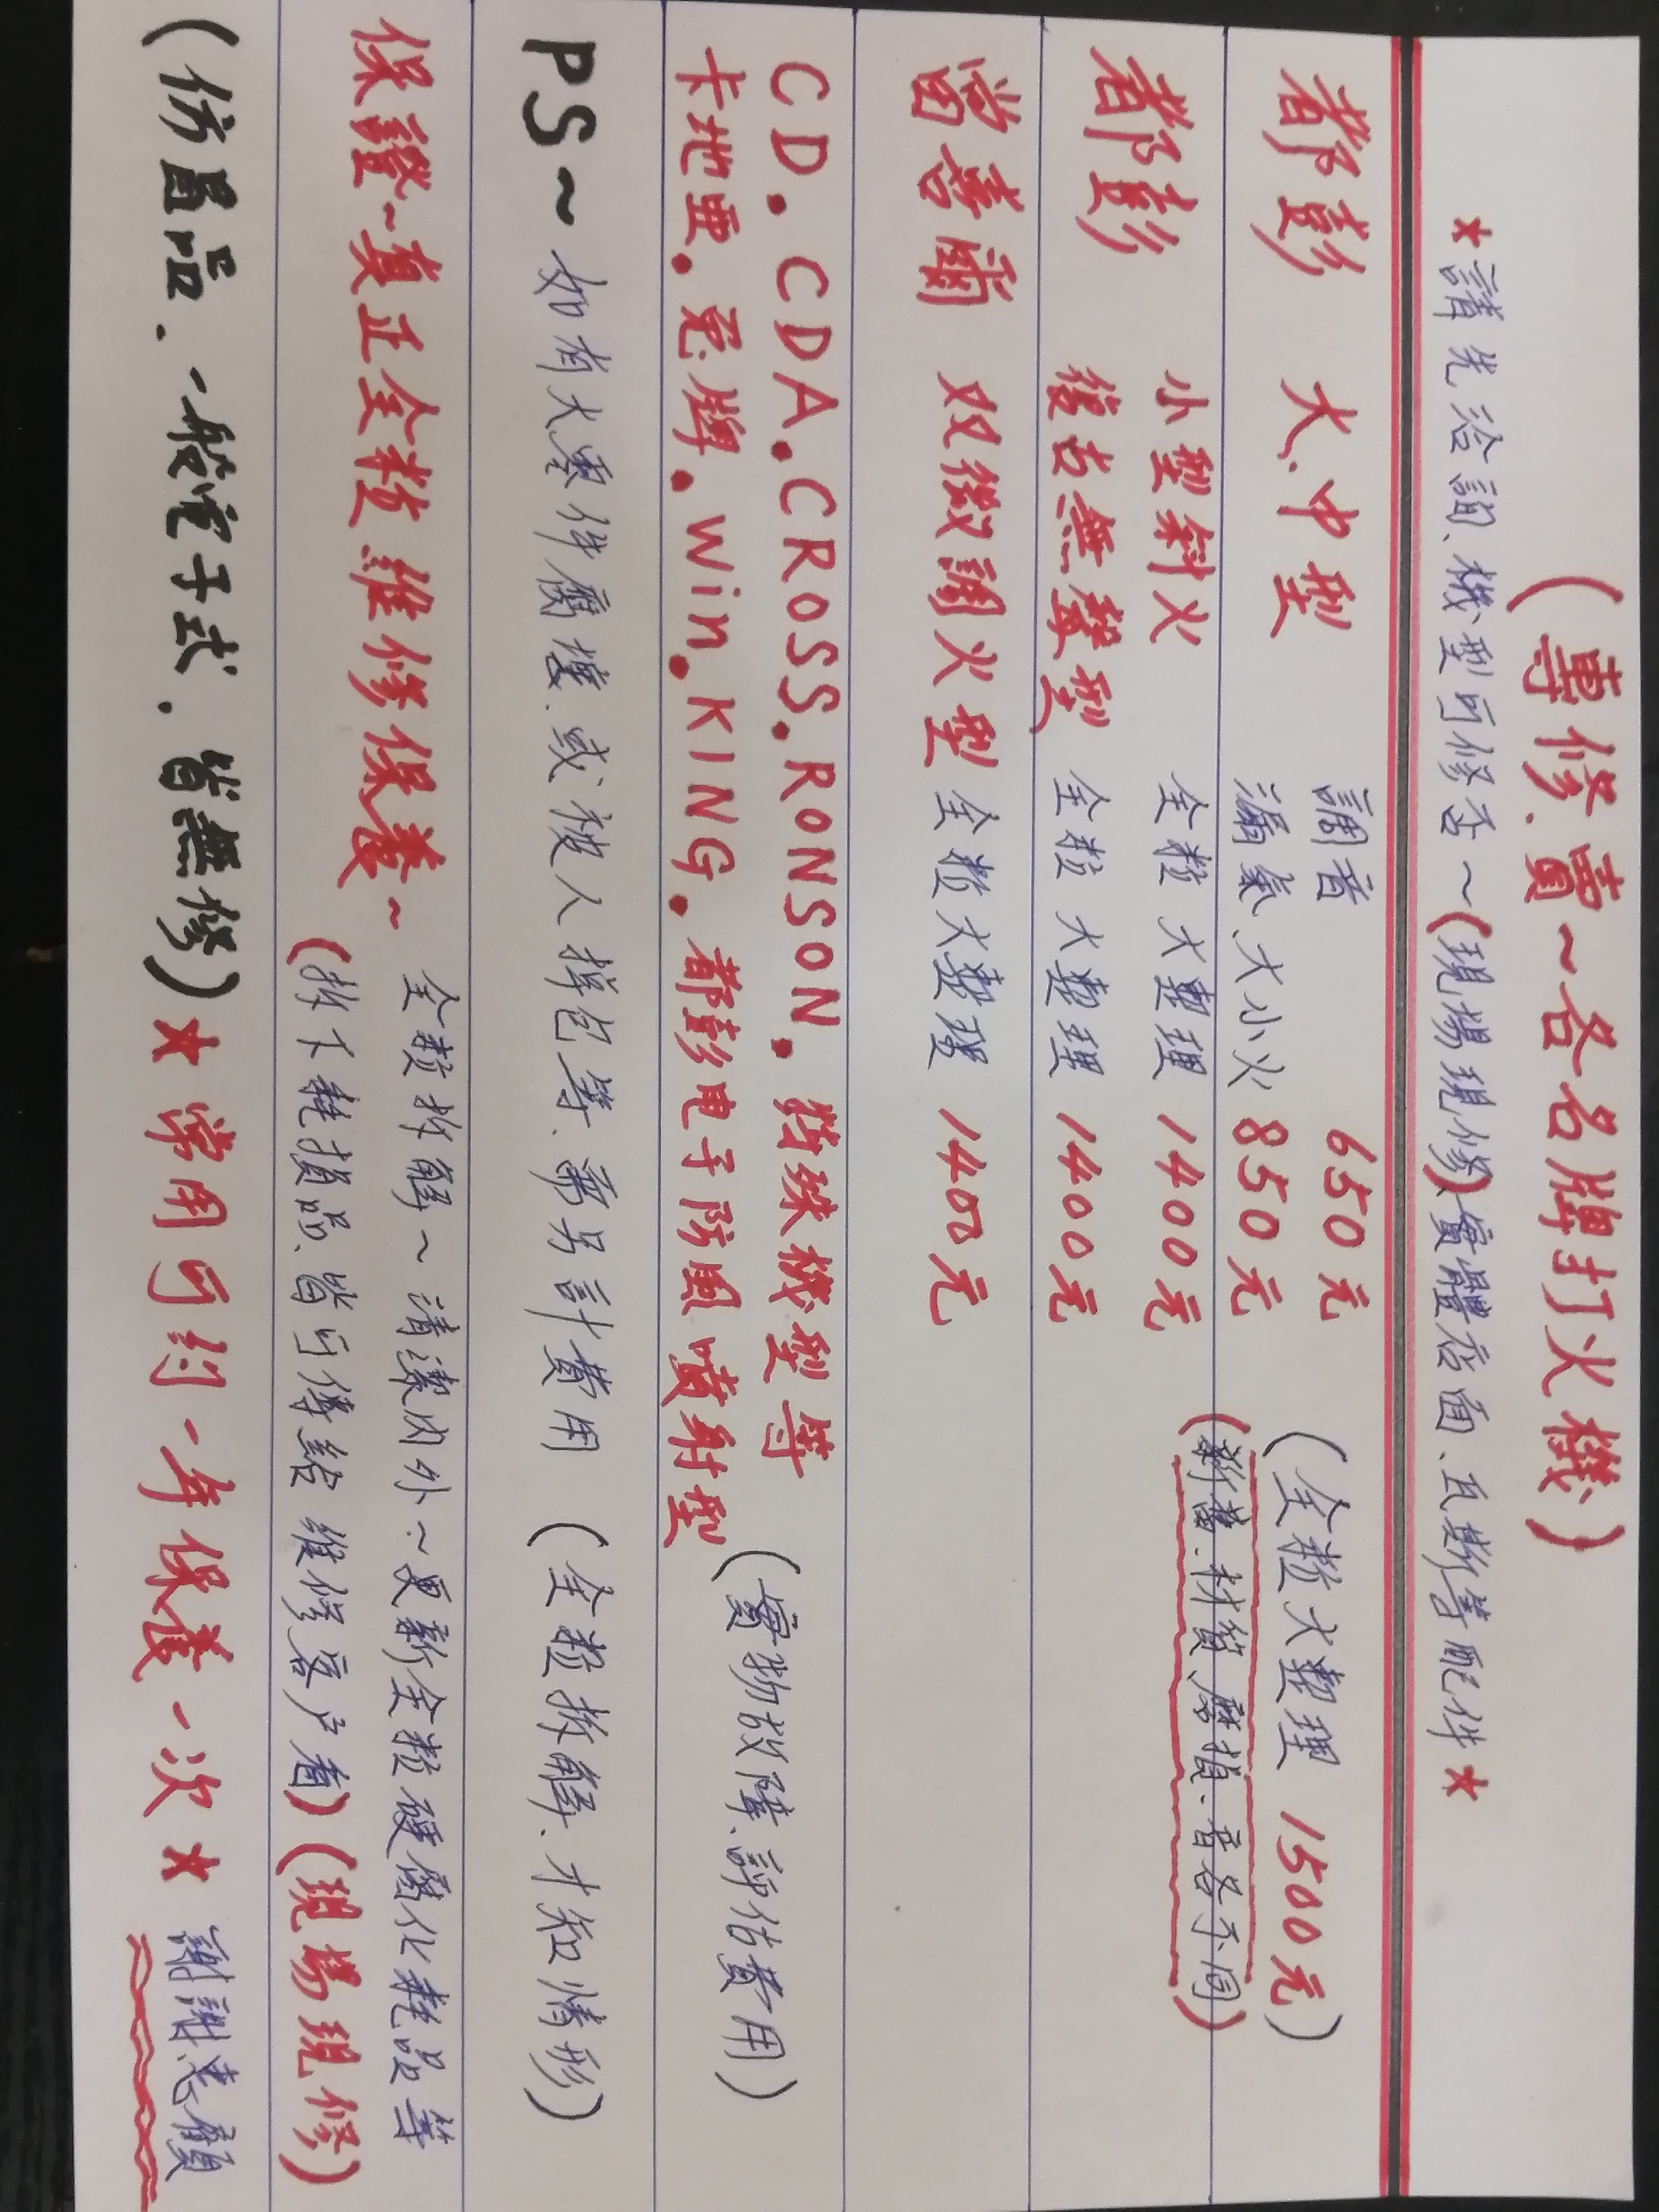 (專修、賣~各名牌打火機)
★請先洽詢、機型可修否~(現場現修)實體店面、瓦斯等配件★
都彭 大、中型 調音 650元 (全粒大整理 1500元)
漏氣、大小火 850元
(新舊.材質.磨損.音各不同)
都彭 小型斜火 全粒大整理 1400元
復古無聲型 全粒大整理 1400元
當喜爾 双微調火型 全粒大整理 1400元
CD.CDA.CROSS.RONSON.特殊機型等
卡地亜.兎牌.Win.KING.都彭电子防風噴射型
(實物故障、評估費用)
PS~如有大零件腐壞、或被人掉包等、需另計費用 (全粒拆解、才知情形)
保證~真正全粒維修保養~
全粒拆解~清潔內外~更新全粒硬固化耗品等
(拆下耗損品、皆可傳給維修客户看)(現場現修)
(仿冒品.一般電子式.皆無修)★常用可約一年保養一次★ 謝謝惠顧